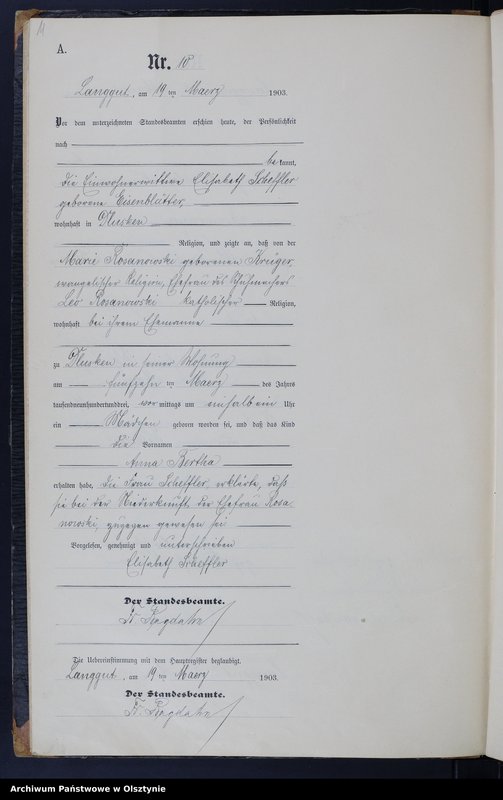 A.
Nr. 10
Langgut, am 19 ten Maerz 1903.
Vor dem unterzeichneten Standesbeamten erschien heute, der Persönlichkeit
nach
bekannt,
die Einwohnerwittwe Elisabeth Scheffler
geborene Eisenblätter,
wohnhaft in Plusken
Religion, und zeigte an, daß von der
Marie Rosanowski geborenen Krüger,
evangelischer Religion, Ehefrau des Schuhmachers
Leo Rosanowski katholischer Religion,
wohnhaft bei ihrem Ehemanne
zu Plusken in seiner Wohnung
am fünfzehn ten Maerz des Jahres
tausendneunhundertunddrei, vor mittags um einhalb ein Uhr
ein Mädchen geboren worden sei, und daß das Kind
die Vornamen
Anna Bertha
erhalten habe, die Frau Scheffler erklärte, daß
sie bei der Niederkunft der Ehefrau Rosa
nowski, zugegen gewesen sei
Vorgelesen, genehmigt und unterschrieben
Elisabeth Scheffler
Der Standesbeamte.
Die Uebereinstimmung mit dem Hauptregister beglaubigt.
Langgut, am 19 ten Maerz 1903.
Der Standesbeamte.
Archiwum Państwowe w Olsztynie